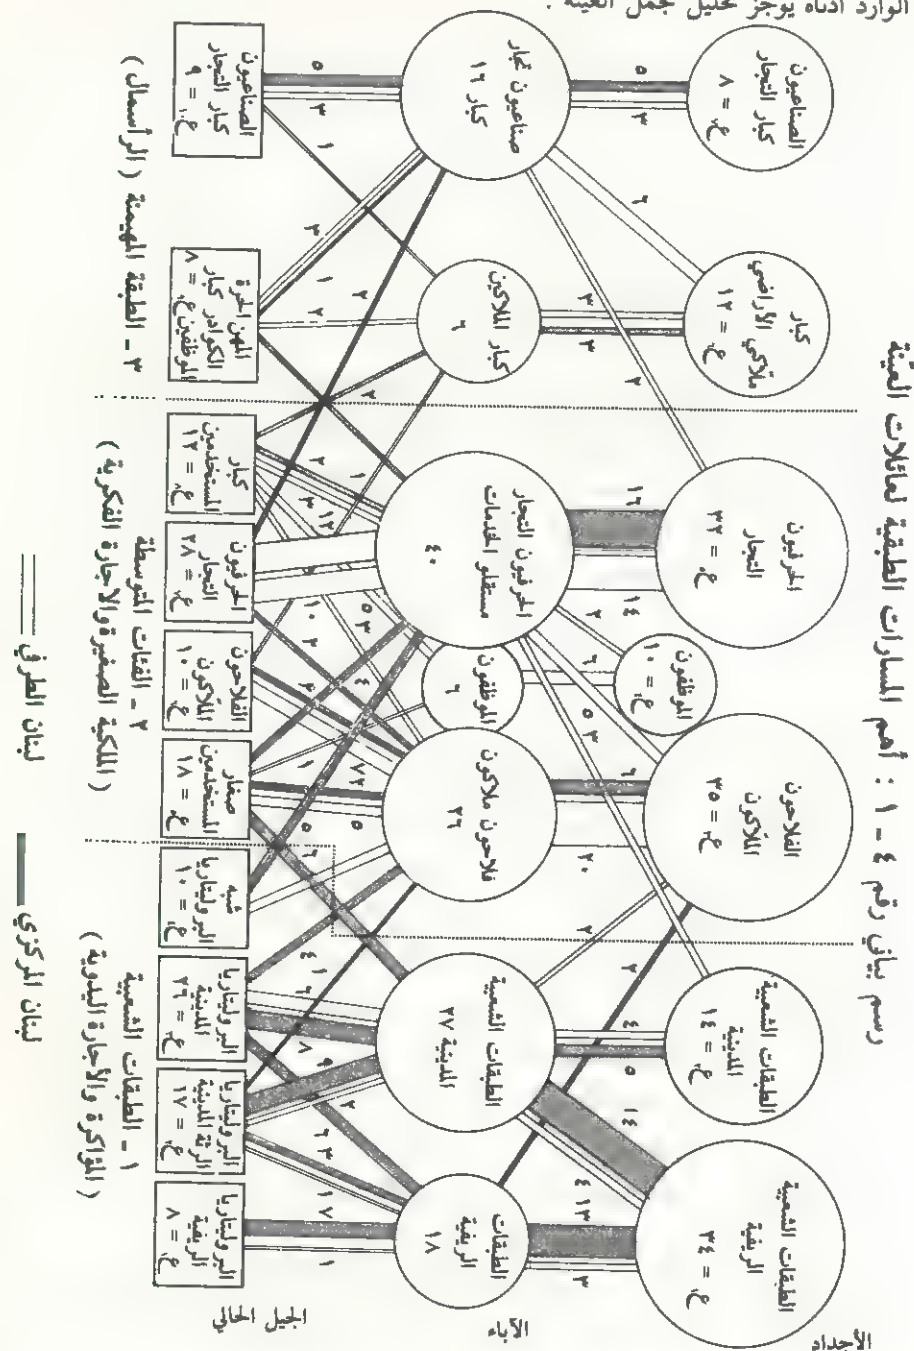 الوارد أدناه يوجز تحليل مجمل العينة .
رسم بياني رقم ٤ - ١ : أهم المسارات الطبقية لعائلات العيّنة
الأجداد
الصناعيون
كبار التجار
ع = ٨
كبار
ملاّكي الأراضي
ع = ١٢
الحرفيون
التجار
ع = ٣٢
الموظفون
ع = ١٠
الفلاحون
الملاّكون
ع = ٣٥
الطبقات الشعبية
المدينية
ع = ١٤
الطبقات الشعبية
الريفية
ع = ٣٤
٥
٣
٦
٣
٣
٢
١٦
١٤
٢
٦
٥
٣
٦
٢٠
٢
٢
٤
٥
١٤
٤
١٣
٣
الآباء
صناعيون تجار
كبار ١٦
كبار الملاكين
٦
الحرفيون التجار
مستقلو الخدمات
٤٠
الموظفون
٦
فلاحون ملاكون
٢٦
الطبقات الشعبية
المدينية ٢٧
الطبقات
الريفية
١٨
٥
٣
١
٣
١
٢
٢
٢
٢
١
٣
١٢
١٠
٣
٥
٣
٤
١
٥
٦
٤
١
٦
٨
٩
٢
٦
٣
١
٧
١
الجيل الحالي
الصناعيون
كبار التجار
ع = ٩
المهن الحرة
الكوادر كبار
الموظفين ع = ٨
كبار
المستخدمين
ع = ١٢
الحرفيون
التجار
ع = ٢٨
الفلاحون
الملاّكون
ع = ١٠
صغار
المستخدمين
ع = ١٨
شبه
البروليتاريا
ع = ١٠
البروليتاريا
المدينية
ع = ٢٦
البروليتاريا
الرثة المدينية
ع = ١٧
البروليتاريا
الريفية
ع = ٨
٣ - الطبقة المهيمنة ( الرأسمال )
٢ - الفئات المتوسطة
( الملكية الصغيرة والاجارة الفكرية )
١ - الطبقات الشعبية
( المؤاكرة والأجارة اليدوية )
لبنان الطرفي
لبنان المركزي